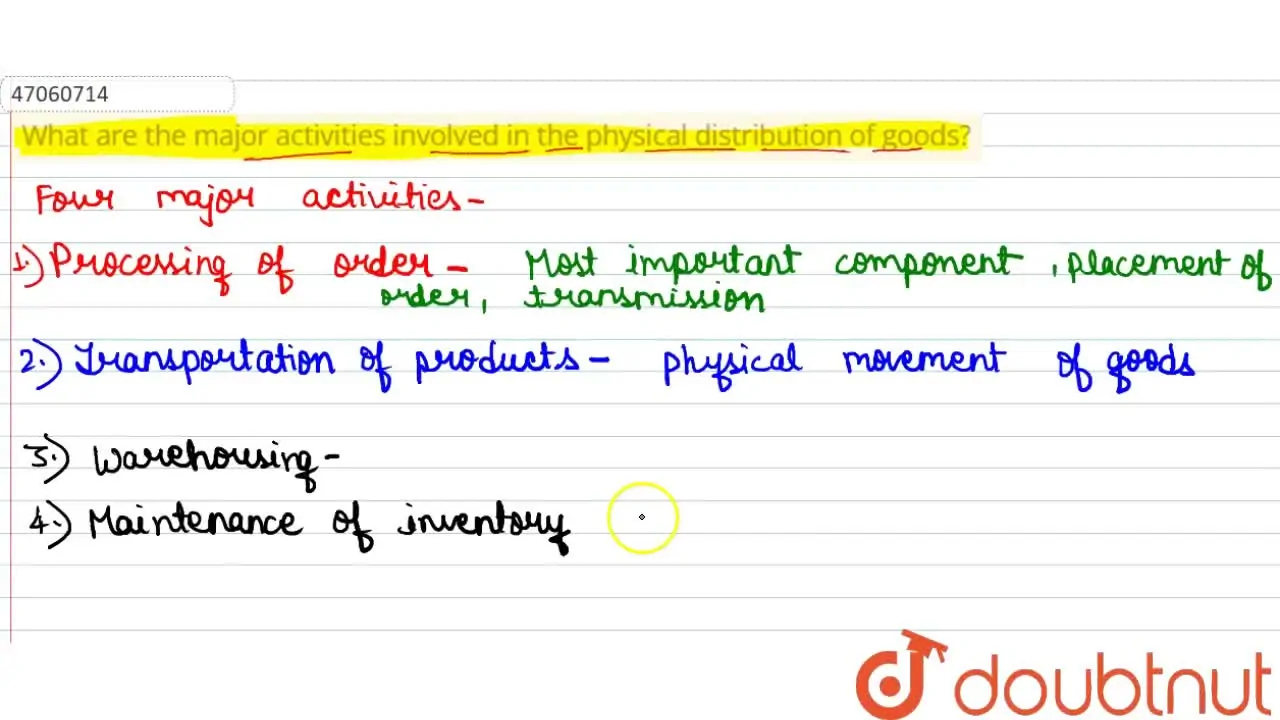 47060714
What are the major activities involved in the physical distribution of goods?
Four major activities-
1.) Processing of order - Most important component, placement of
order, transmission
2.) Transportation of products - physical movement of goods
3.) Warehousing -
4.) Maintenance of inventory
doubtnut